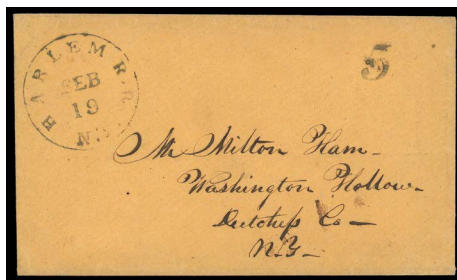 HARLEM R.R.
FEB
19
N.Y.
5
Mr Milton Ham
Washington Hollow
Dutchess Co
N.Y.